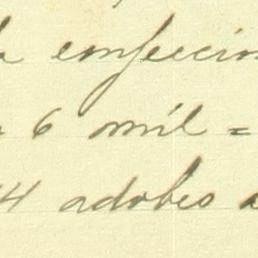 confeccio
6 mil =
4 adobes